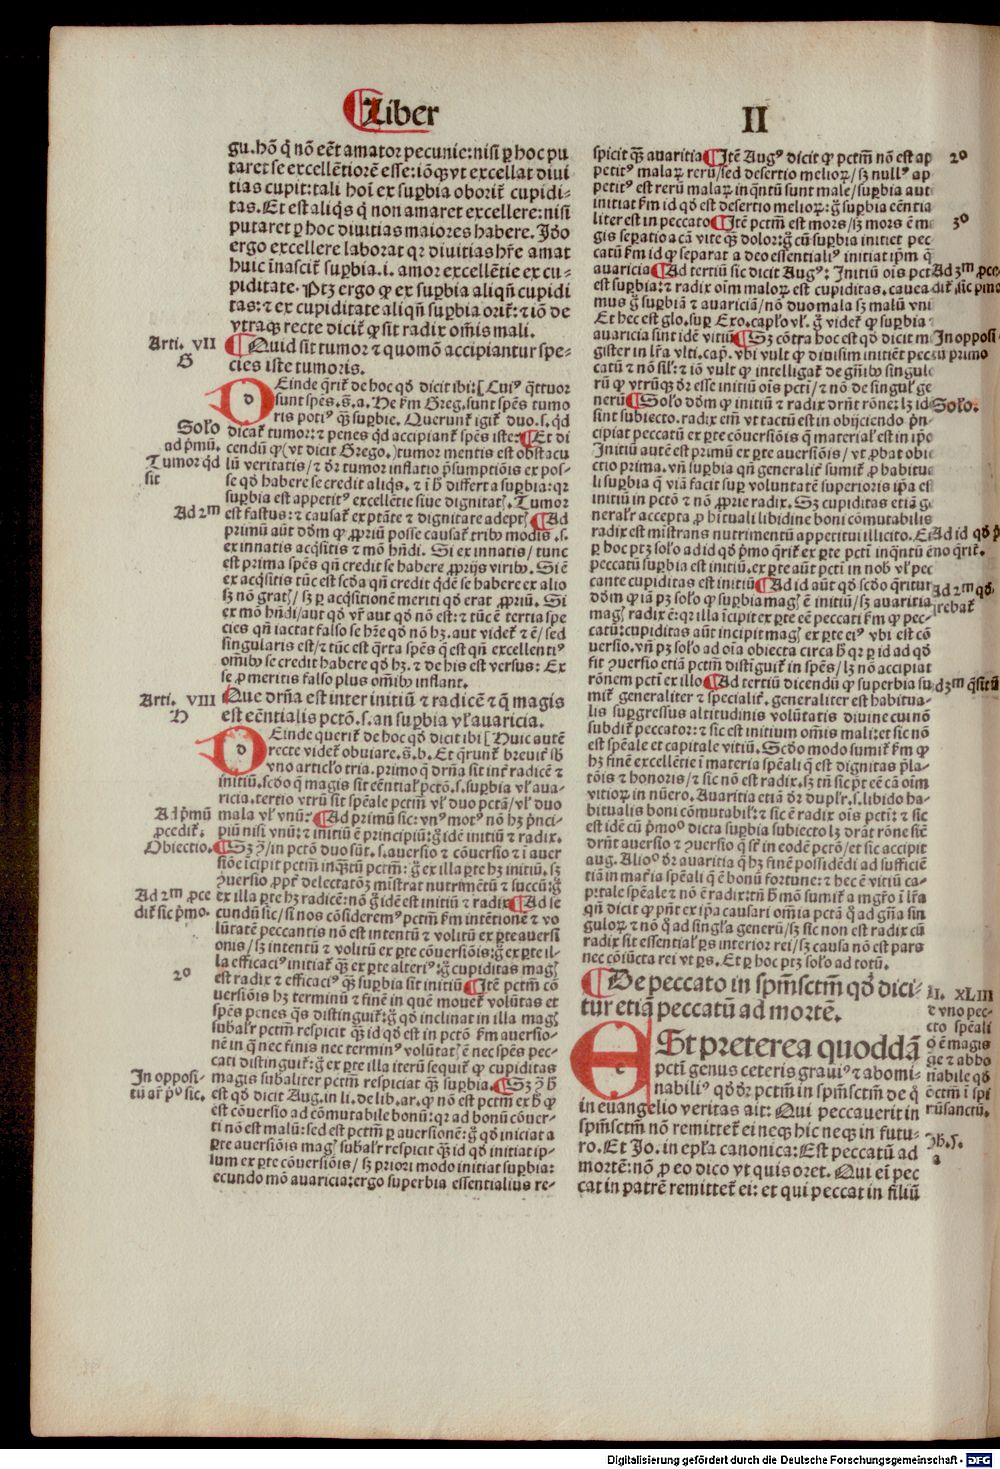 Liber
II
gu. hõ q̃ nõ eẽt amator pecunie: nisi ꝑ hoc pu
taret se excellẽtiorẽ esse: iõqȝ vt excellat diui
tias cupit: tali hoĩ ex supbia oborit̃ cupidi-
tas. Et est aliq̃s q̃ non amaret excellere: nisi
putaret ꝑ hoc diuitias maiores habere. Jdo
ergo excellere laborat qꝛ diuitias hr̃e amat
huic ĩnascit̃ supbia .i. amor excellẽtie ex cu-
piditate. Ptȝ ergo ꝙ ex supbia aliqñ cupidi
tas: ⁊ ex cupiditate aliqñ supbia orit̃: ⁊ iõ de
vtraqȝ recte dicit̃ ꝙ sit radix oĩs mali.
Arti. VII
G
Quid sit tumor ⁊ quomõ accipiantur spe-
cies iste tumoris.
Deinde q̃rit̃ de hoc qð dicit ibi: [Cuiꝰ q̃ttuor
sunt spẽs. §. a. De km̃ Greg. sunt spẽs tumo
ris potiꝰ qȝ supbie. Querunt̃ igit̃ duo .s. qd
dicat̃ tumor: ⁊ penes qd accipiant̃ spẽs iste:
Solo
ad pmũ.
Tumor qd
sit
Et di
cendũ ꝙ (vt dicit Brego.) tumor mentis est obstacu
lũ veritatis / ⁊ dr̃ tumor inflatio p̃sumptiõis ex pos-
se qð habere se credit aliqs. ⁊ ĩ h̃ differt a supbia: qꝛ
supbia est appetitꝰ excellẽtie siue dignitatꝭ. Tumor
est fastus: ⁊ causat̃ ex ptãte ⁊ dignitate adeptꝭ
Ad 2m
Ad
primũ aũt dõm ꝙ ꝓpriũ posse causat̃ tribꝰ modis .s.
ex innatis acq̃sitis ⁊ mõ hñdi. Si ex innatis / tunc
est prima spẽs qñ credit se habere ꝓprijs viribꝰ. Si ẽ
ex acq̃sitis tũc est scðа qñ credit q̃dẽ se habere ex alio
sȝ nõ gratꝭ / sȝ ꝑ acq̃sitionẽ meriti qð erat ꝓpriũ. Si
ex mõ hñdi / aut qð vr̃ aut qð nõ est: ⁊ tũc ẽ tertia spe
cies qñ iactat falso se hr̃e qð nõ hȝ. aut videt̃ ⁊ ẽ / sed
singularis est / ⁊ tũc est q̃rta spẽs q̃ est qñ excellentiꝰ
oĩbꝰ se credit habere qð hȝ. ⁊ de his est versus: Ex
se ꝓ meritis falso plus oĩbꝰ inflant.
Arti. VIII
H
Que drñа est inter initiũ ⁊ radicẽ ⁊ q̃ magis
est eẽntialis pctõ .s. an supbia vl̃ auaricia.
Deinde querit̃ de hoc qð dicit ibi [Huic autẽ
recte videt̃ obuiare. §. b. Et q̃runt̃ breuit̃ sb̃
vno articl̃o tria. primo q̃ drña sit int̃ radicẽ ⁊
initiũ. scðo q̃ magis sit eẽntial̃ pctõ .s. supbia vl̃ aua-
ricia. tertio vtrũ sit spẽale pctm̃ vl̃ duo pctã / vl̃ duo
mala vl̃ vnũ:
Ad pmũ
ꝓcedit̃.
Obiectio.
Ad primũ sic: vnꝰ motꝰ nõ hȝ p̃nci-
piũ nisi vnũ: ⁊ initiũ ẽ principiũ: g̃ idẽ initiũ ⁊ radix.
Sȝ ꝯ̃ / in pctõ duo sũt .s. auersio ⁊ cõuersio ⁊ ĩ auer
siõe ĩcipit pctm̃ inqȝtũ pctm̃: g̃ ex illa ꝑte hȝ initiũ. sȝ
ꝯuersio ꝓpt̃ delectatõȝ mistrat nutrimẽtũ ⁊ succũ: g̃
ex illa ꝑte hȝ radicẽ: nõ g̃ idẽ est initiũ ⁊ radix
Ad 2m ꝓce
dit̃ sic pmo.
Ad se
cundũ sic / si nos cõsideremꝰ pctm̃ km̃ intẽtionẽ ⁊ vo
lũtatẽ peccantis nõ est intentũ ⁊ volitũ ex ꝑte auersi
onis / sȝ intentũ ⁊ volitũ ex ꝑte cõuersiõis: g̃ ex ꝑte il-
la efficaciꝰ initiat̃ qȝ ex ꝑte alteriꝰ: g̃ cupiditas magꝭ
est radix ⁊ efficaciꝰ qȝ supbia sit initiũ
2o
Jtẽ pctm̃ cõ
uersiõis hȝ terminũ ⁊ finẽ in quẽ mouet̃ volũtas et
spẽs penes q̃s distinguit̃: g̃ qð inclinat in illa magꝭ
subal̃r pctm̃ respicit qȝ id qð est in pctõ km̃ auersio-
nẽ in q̃ nec finis nec terminꝰ volũtatꝭ ẽ nec spẽs pec-
cati distinguit̃: g̃ ex ꝑte illa iterũ sequit̃ ꝙ cupiditas
magis subaliter pctm̃ respiciat qȝ supbia.
In opposi-
tũ ar̃ pꝰ sic.
Sȝ ꝯ̃ h̃
est qð dicit Aug. in li. de lib. ar. ꝙ nõ est pctm̃ ex h̃ ꝙ
est cõuersio ad cõmutabile bonũ: qꝛ ad bonũ cõuer-
ti nõ est malũ: sed est pctm̃ ꝑ auersionẽ: g̃ qð iniciat a
ꝑte auersiõis magꝭ subal̃r respicit qȝ id qð initiat ip-
sum ex ꝑte cõuersiõis / sȝ priori modo initiat supbia:
ecundo mõ auaricia: ergo superbia essentialius re-
spicit qȝ auaritia
2o
Jtẽ Augꝰ dicit ꝙ pctm̃ nõ est ap
petitꝰ malaꝝ rerũ / sed desertio melioꝝ / sȝ nullꝰ ap
petitꝰ est rerũ malaꝝ inq̃ntũ sunt male / supbia aut
initiat̃ km̃ id qð est desertio melioꝝ: g̃ supbia eẽntia
liter est in peccato
3o
Jtẽ pctm̃ est mors / sȝ mors ẽ m
gis sepatio a cã vite qȝ dolor: g̃ cũ supbia initiet pec
catũ km̃ id ꝙ separat a deo essentialiꝰ initiat ipm̃ q̃
auaricia
Ad 3m ꝓce
dit̃ sic pmo
Ad tertiũ sic dicit Augꝰ: Initiũ ois pct
est supbia: ⁊ radix oĩm maloꝝ est cupiditas. cauea
mus g̃ supbiã ⁊ auariciã / nõ duo mala sȝ malũ vni
Et hec est glo. sup Exo. capl̃o vl̃. g̃ videt̃ ꝙ supbia
auaricia sint idẽ vitiũ
In opposi
tu primo
Sȝ cõtra hoc est qð dicit m
gister in lr̃a vlti. cap̃. vbi vult ꝙ diuisim initiẽt pec
catũ ⁊ nõ sil̃: ⁊ iõ vult ꝙ intelligat̃ de gñibꝰ singulo
rũ ꝙ vtrũqȝ dr̃ esse initiũ ois pcti / ⁊ nõ de singulꝭ ge
nerũ
Solo.
Solo dõm ꝙ initiũ ⁊ radix drñt rõne: lȝ id
sint subiecto. radix em̃ vt tactũ est in obijciendo p̃n-
cipiat peccatũ ex ꝑte cõuersiõis q̃ material̃ est in ip̃o
Initiũ autẽ est primũ ex ꝑte auersiõis / vt ꝓbat obie
ctio prima. vñ supbia qñ generalit̃ sumit̃ ꝓ habitua
li supbia q̃ viã facit sup voluntatẽ superioris ip̃a est
initiũ in pctõ ⁊ nõ ꝓprie radix. Sȝ cupiditas etiã ge
neral̃r accepta ꝓ habituali libidine boni cõmutabilis
radix est mistrans nutrimentũ appetitui illicito. Ei
Ad id qð p̃
mo q̃rit̃.
ꝑ hoc ptȝ sol̃o ad id qð pmo q̃rit̃ ex ꝑte pcti inq̃ntũ ẽ
peccatũ supbia est initiũ. ex ꝑte aũt pcti in nob̃ vl̃ pec
cante cupiditas est initiũ
Ad 2m qð
q̃rebat̃
Ad id aũt qð scðo q̃ritur
dõm ꝙ iã pȝ sol̃o ꝙ supbia magꝭ ẽ initiũ / sȝ auaritia
magꝭ radix ẽ: qꝛ illa ĩcipit ex ꝑte eẽ peccati km̃ ꝙ pec-
catũ: cupiditas aũt incipit magꝭ ex ꝑte eiꝰ vbi est cõ
uersio. vñ pȝ sol̃o ad oĩa obiecta circa h̃ qꝛ ꝑ id ad qð
fit ꝯuersio etiã pctm̃ distĩguit̃ in spẽs / lȝ nõ accipiat
rõnem pcti ex illo
Ad 3m q̃situ
Ad tertiũ dicendũ ꝙ superbia su
mit̃ generaliter ⁊ specialit̃. generaliter est habitua-
lis supgressus altitudinis volũtatis diuine cui nõ
subdit̃ peccator: ⁊ sic est initium oĩs mali: et sic nõ
est spẽale et capitale vitiũ. Scðo modo sumit̃ km̃ ꝙ
hȝ finẽ excellẽtie ĩ materia spẽali q̃ est dignitas p̃la-
tõis ⁊ honoris / ⁊ sic nõ est radix. sȝ tñ sic p̃t eẽ cã oĩm
vitioꝝ in nũero. Auaritia etiã dr̃ dupl̃r .s. libido ha-
bitualis boni cõmutabil̃: ⁊ sic ẽ radix ois pcti: ⁊ sic
est idẽ cũ pmoꝰ dicta supbia subiecto lȝ drãt rõne siẽ
drñt auersio ⁊ ꝯuersio q̃ st̃ in eodẽ pctõ / et sic accipit
aug. Alioꝰ dr̃ auaritia q̃ hȝ finẽ possidẽdi ad sufficiẽ
tiã in mat̃ia spẽali q̃ ẽ bonũ fortune: ⁊ hec ẽ vitiũ ca-
pitale spẽale ⁊ nõ ẽ radix: tñ h̃ mõ sumit̃ a mg̃ro ĩ lr̃a
qñ dicit ꝙ pñt ex ip̃a causari oĩa pctã q̃ ad gñа sin
guloꝝ ⁊ nõ q̃ ad singl̃a generũ / sȝ sic non est radix cũ
radix sit essential̃ ꝑs interior rei / sȝ causa nõ est pars
nec cõiũcta rei vt ꝑs. Et ꝑ hoc ptȝ sol̃o ad totũ.
De peccato in spm̃sctm̃ qð dici-
tur etiã peccatũ ad mortẽ.
XLIII
Est preterea quoddã
pcti genus ceteris grauiꝰ ⁊ abomi-
nabiliꝰ qð dr̃ pctm̃ in spm̃sctm̃ de q̃
in euangelio veritas ait: Qui peccauerit in
spm̃sctm̃ nõ remittet̃ ei neqȝ hic neqȝ in futu-
ro. Et Jo. in epl̃a canonica: Est peccatũ ad
mortẽ: nõ ꝓ eo dico vt quis oret. Qui eĩ pec
cat in patrẽ remittet̃ ei: et qui peccat in filiũ
Digitalisierung gefördert durch die Deutsche Forschungsgemeinschaft - DFG